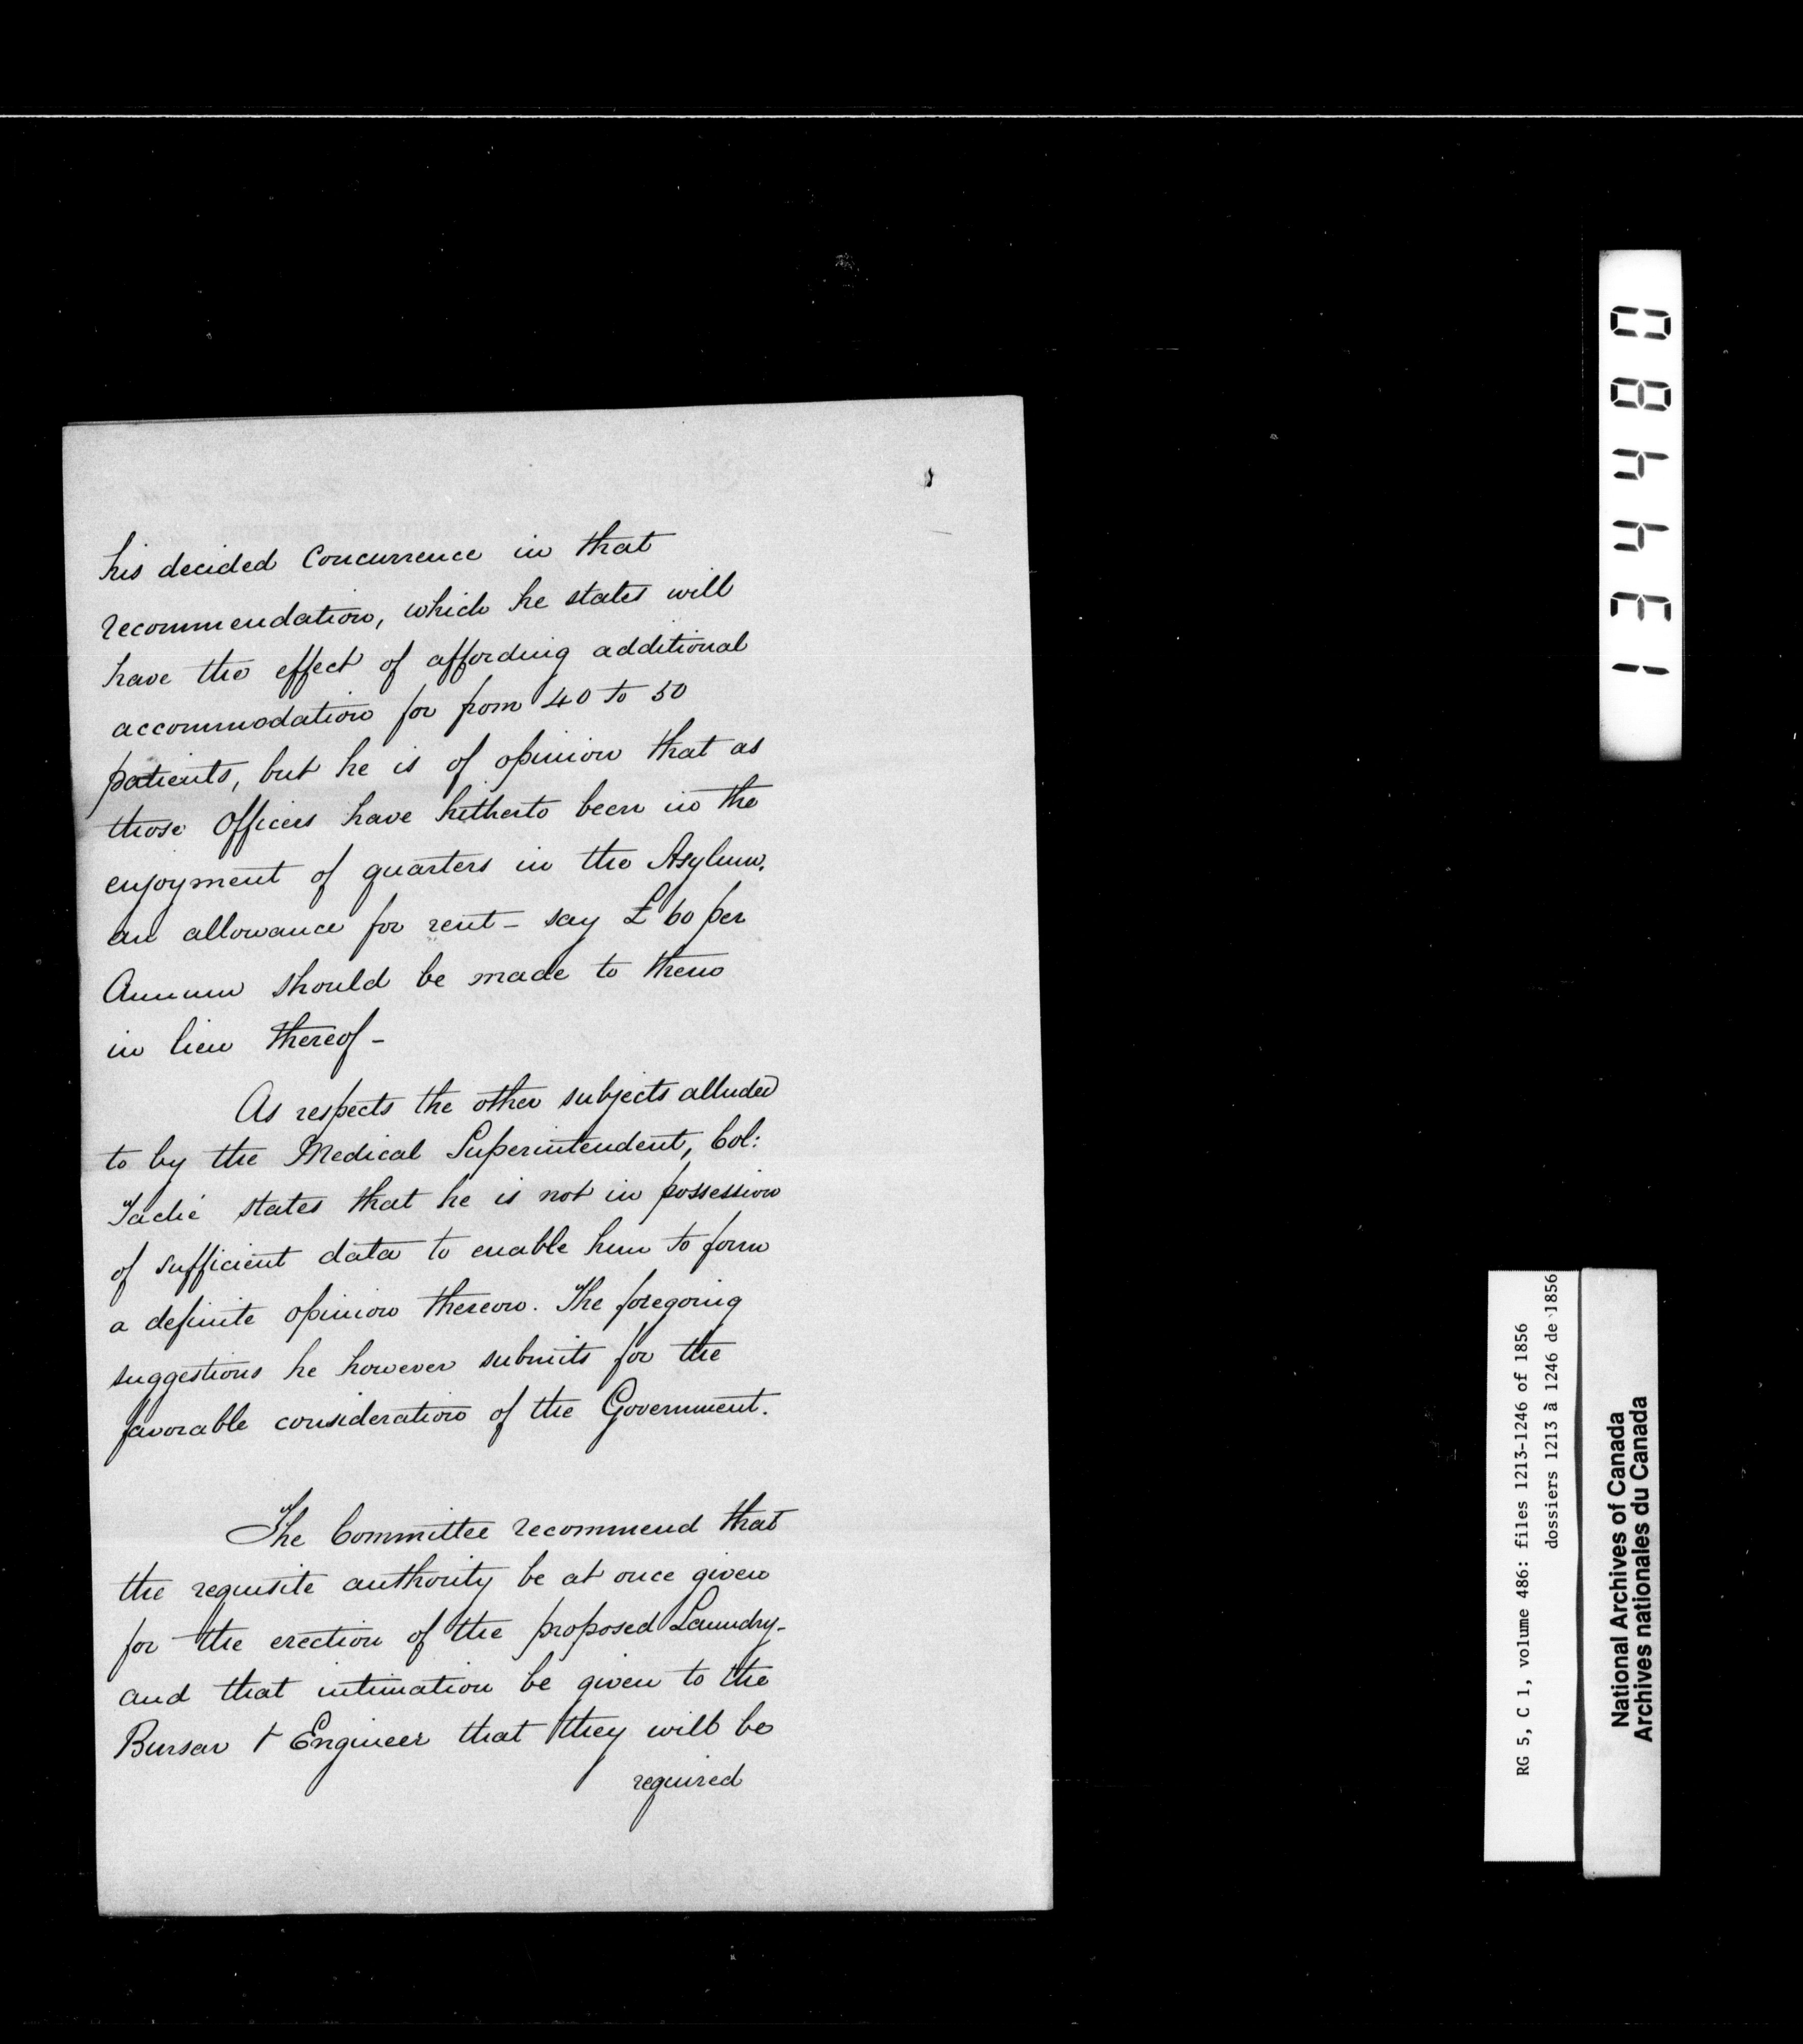 his decided Concurrence in that
recommendation, which he states will
have the effect of affording additional
accommodation for from 40 to 50
patients, but he is of opinion that as
those Officers have hitherto been in the
enjoyment of quarters in the Asylum,
an allowance for rent - say £60 per
Annum should be made to them
in lieu thereof -
As respects the other subjects alluded
to by the Medical Superintendent, Col:
Taché states that he is not in possession
of sufficient data to enable him to form
a definite opinion thereon. The foregoing
suggestions he however submits for the
favorable consideration of the Government.
The Committee recommend that
the requisite authority be at once given
for the erection of the proposed Laundry -
and that intimation be given to the
Bursar & Engineer that they will be
required
084431
RG 5, C 1, volume 486: files 1213-1246 of 1856
dossiers 1213 à 1246 de 1856
National Archives of Canada
Archives nationales du Canada